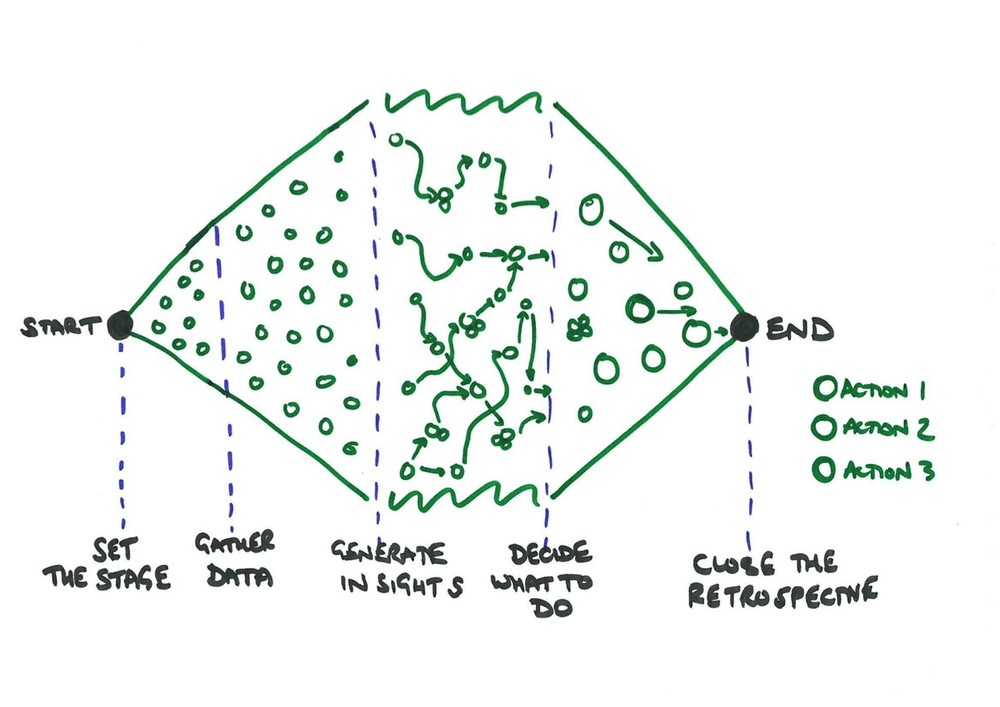 START
END
ACTION 1
ACTION 2
ACTION 3
SET
THE STAGE
GATHER
DATA
GENERATE
INSIGHTS
DECIDE
WHAT TO
DO
CLOSE THE
RETROSPECTIVE